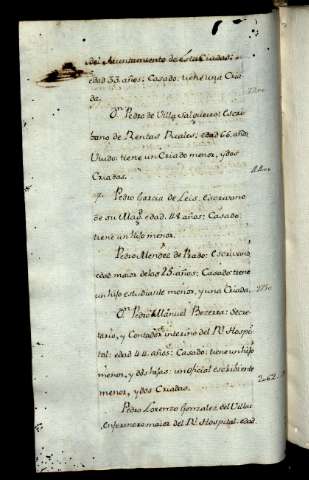 del Ayuntamiento de esta Ciudad:
edad 33 años: Casado: tiene una Cria
da.
Dn. Pedro de Villa Salguero: Escri
bano de Rentas Reales; edad 66 añs.
Viudo: tiene un Criado menor, y dos
Criadas.
Pedro Garcia de Leis, escrivano
de su Mag. edad. 48 años: Casado
tiene un hijo menor.
Pedro Mendez de Prado: Escrivano,
edad maior de los 25 años; Casado tiene
un hijo estudiante menor, y una Criada.
Dn. Pedro Manuel Bezerra: Secre
tario, y Contador interino del Rl. Hospi
tal: edad 44. años: Casado: tiene un hijo
menor, y dos hijas: un oficial escribiente
menor, y dos Criadas.
Pedro Lorenzo Gonzalez del Villar
enfermero maior del Rl. Hospital: edad.